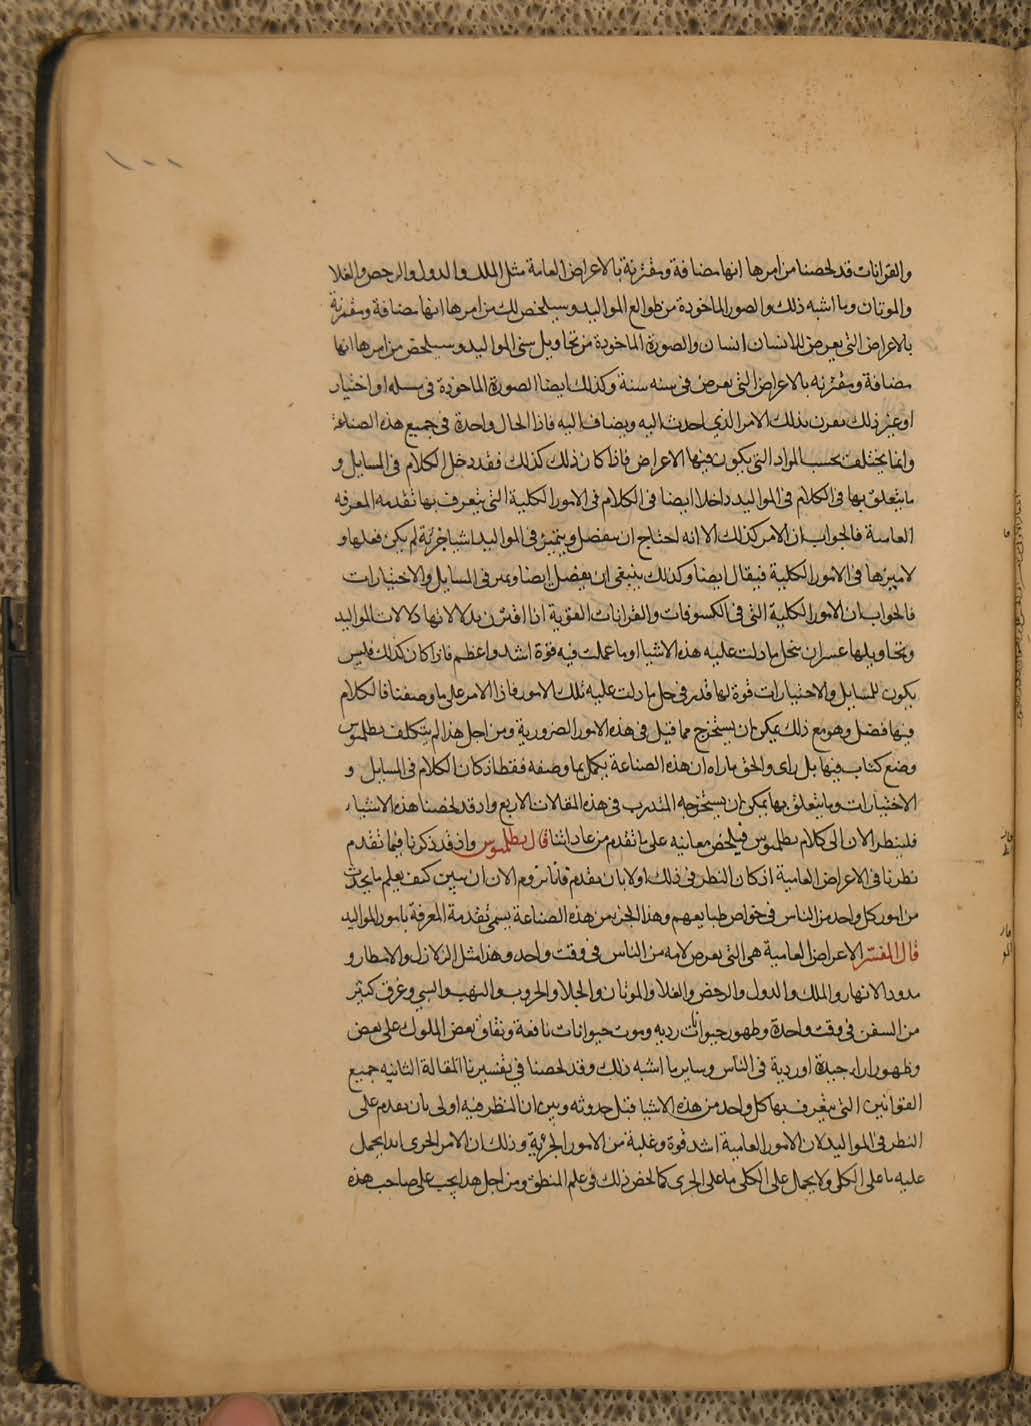 ١٠٠
والقرانات قد لخصنا من امرها انها مضافة ومقترنة بالاعراض العامة مثل الملك والدول والرخص والغلا
والموتان وما اشبه ذلك والصور الماخوذة من طوالع المواليد وسيلخص لك من امرها انها مضافة ومقترنة
بالاعراض التي يعرض للانسان انسان والصورة الماخوذة من تحاويل سني المواليد وسيلخص من امرها انها
مضافة ومقترنه بالاعراض التي تعرض في سنه سنة وكذلك ايضا الصورة الماخوذة في مسله او اختيار
او غير ذلك تقرن بذلك الامر الذي احدث اليه ويضاف اليه فاذا الحال واحدة في جميع هذه الصناعة
وانما يختلف بحسب المواد التي يكون فيها الاعراض فاذا كان ذلك كذلك فقد دخل الكلام في المسايل و
ما يتعلق بها في الكلام في المواليد داخلا ايضا في الكلام في الامور الكلية التي يتعرف بها تقدمه المعرفه
العامية فالجواب ان الامر كذلك الا انه احتاج ان يفصل ويتميز في المواليد اشيا جزئية لم يكن فعلها و
لاميزها في الامور الكلية فيقال ايضا وكذلك ينبغي ان يفصل ايضا وتميز في المسايل والاختيارات
فالجواب ان الامور الكلية التي في الكسوفات والقرانات القوية اذا اقترن بدلالاتها دلالات المواليد
وتحاويلها عسر ان تنحل ما دلت عليه هذه الاشيا او ما عملت فيه قوة اشد واعظم فاذا كان كذلك فليس
يكون للمسايل والاختيارات قوة لها قدر في حل ما دلت عليه تلك الامور فاذا الامر على ما وصفنا فالكلام
فيها فضل وهو مع ذلك يمكن ان يستخرج مما قيل في هذه الامور الضرورية ومن اجل هذا لم يتكلف بطلميوس
وضع كتاب فيها بل راى والحق ما راه ان هذه الصناعة يكمل بما وصفه فقط اذ كان الكلام في المسايل و
الاختيارات وما يتعلق بها يمكن ان يستخرجه المتدرب في هذه المقالات الاربع واذ قد لخصنا هذه الاشيا
فلينظر الان الى كلام بطلميوس فيلخص معانيه على ما تقدم من عاداتنا قال بطلميوس واذ قد ذكرنا فيما تقدم
نظرنا في الاعراض العامية اذ كان النظر في ذلك اولا بان يقدم فانا نروم الان ان نبين كيف يعلم ما يحدث
من امور كل واحد من الناس في خواص طبايعهم وهذا الجزء من هذه الصناعة يسمى تقدمة المعرفة بامور المواليد
قال المفسر الاعراض العامية هي التي يعرض لامه من الناس في وقت واحد وهذا مثل الزلازل والامطار و
مدود الانهار والملك والدول والرخص والغلا والموتان والجلا والحروب والنهب والسبي وغرق كثير
من السفن في وقت واحدة وظهور حيوانات رديه وموت حيوانات نافعة ونفاق بعض الملوك على بعض
وظهور اراء جيدة او ردية في الناس وساير ما اشبه ذلك وقد لخصنا في تفسيرنا المقالة الثانيه جميع
القوانين التي يتعرف بها كل واحد من هذه الاشيا قبل حدوثه وبين ان النظر فيه اولى بان يقدم على
النظر في المواليد لان الامور العامية اشد قوة وغلبة من الامور الجزئية وذلك ان الامر الجزى ابدا يحمل
عليه ما على الكلي ولا يحمل على الكلي ما على الجزى كما لخص ذلك في علم المنطق ومن اجل هذا يجب على صاحب هذه